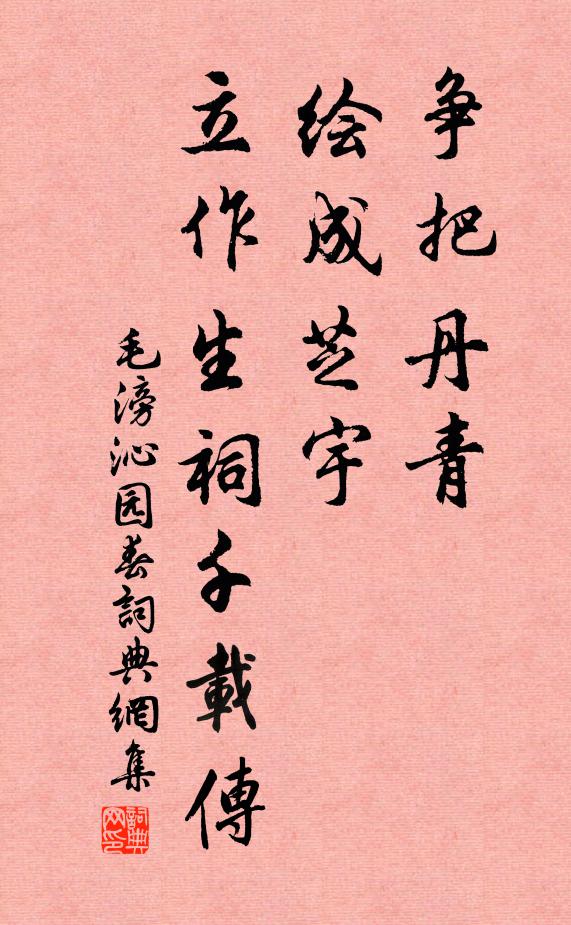 争把丹青
绘成芝宇
立作生祠千載傳
毛滂沁园春詞典網集
詞典网印